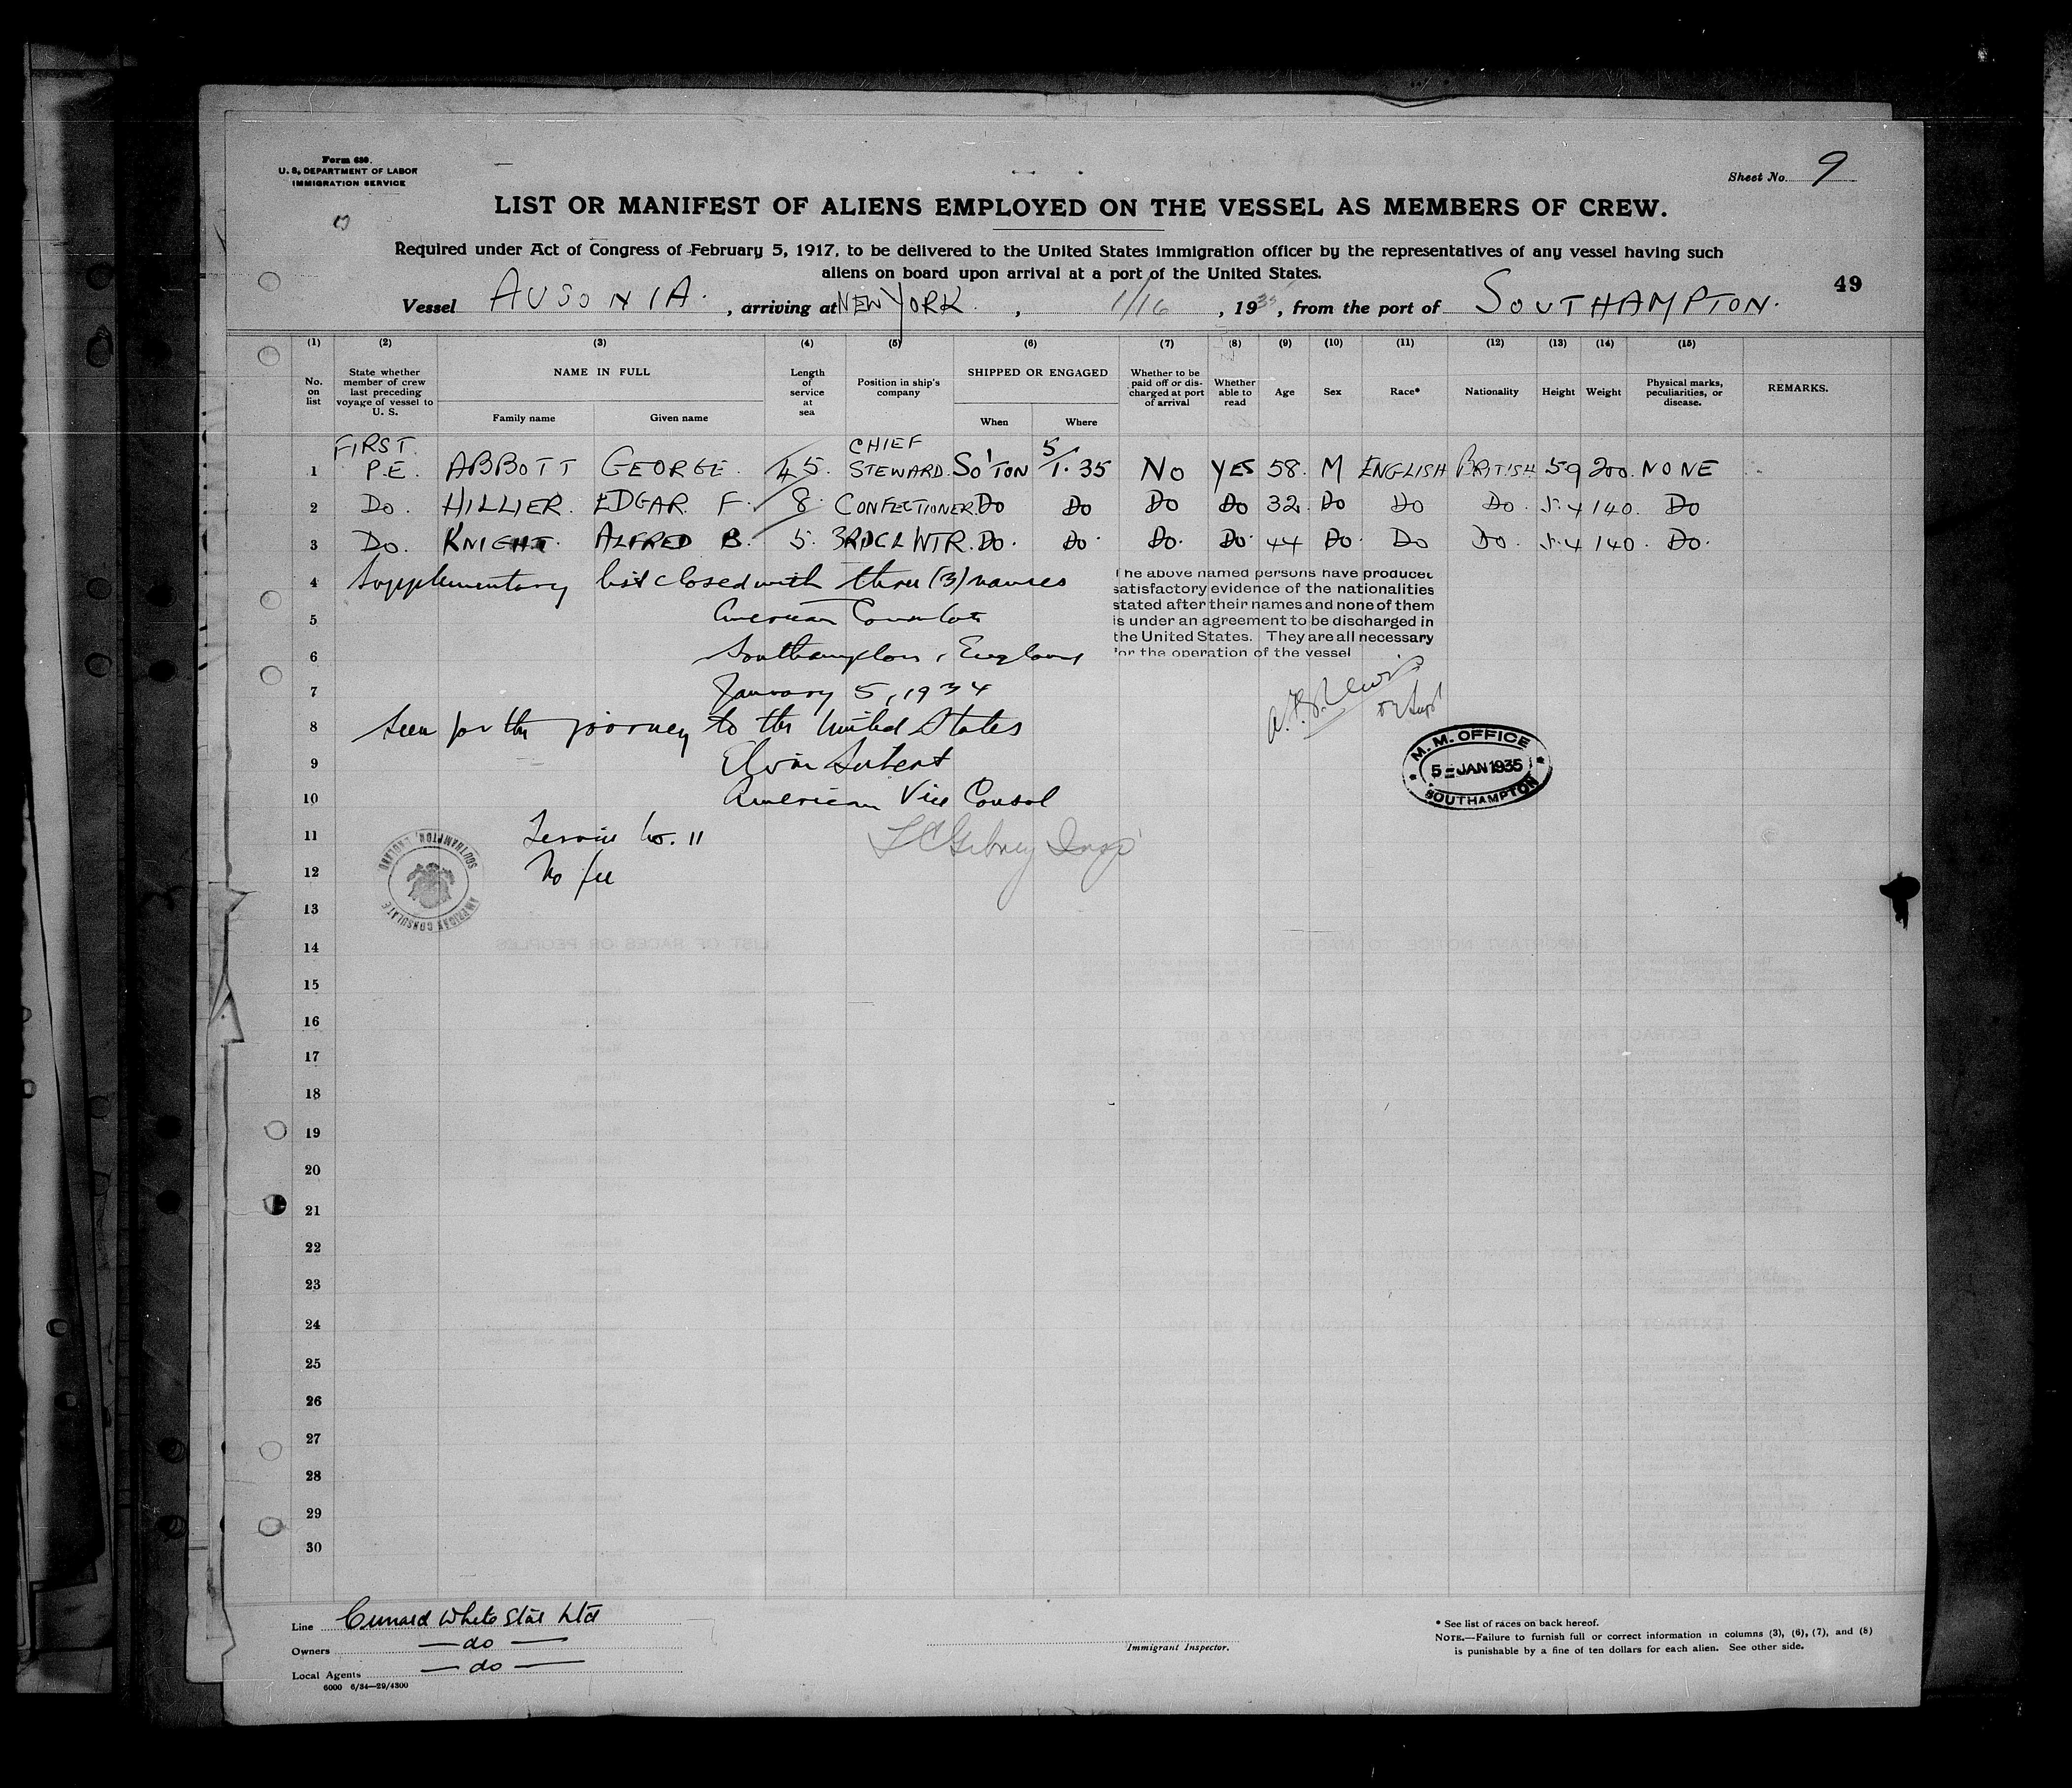 Form 680.
U. S. DEPARTMENT OF LABOR
IMMIGRATION SERVICE
Sheet No. 9
LIST OR MANIFEST OF ALIENS EMPLOYED ON THE VESSEL AS MEMBERS OF CREW.
Required under Act of Congress of February 5, 1917, to be delivered to the United States immigration officer by the representatives of any vessel having such
aliens on board upon arrival at a port of the United States.
49
Vessel AUSONIA. , arriving at NEW YORK. , 1/16 , 1935 , from the port of SOUTHAMPTON.
(1) (2) (3) (4) (5) (6) (7) (8) (9) (10) (11) (12) (13) (14) (15)
No. on list
State whether member of crew last preceding voyage of vessel to U. S.
NAME IN FULL
Family name Given name
Length of service at sea
Position in ship's company
SHIPPED OR ENGAGED
When Where
Whether to be paid off or discharged at port of arrival
Whether able to read
Age Sex Race* Nationality Height Weight
Physical marks, peculiarities, or disease.
REMARKS.
1 FIRST P.E. ABBOTT GEORGE. 45. CHIEF STEWARD. SO'TON 5/1.35 NO YES 58. M ENGLISH BRITISH 59 200. NONE
2 Do. HILLIER. EDGAR F. 8. CONFECTIONER. Do Do Do Do 32. Do Do Do. 5.4 140. Do
3 Do. KNIGHT. ALFRED B. 5. 3RDCL WTR. Do. Do. Do. Do. 44 Do. Do Do. 5.4 140. Do.
4 Supplementary list closed with three (3) names
5 American Consulate
6 Southampton, England
7 January 5, 1934
8 Seen for the journey to the United States
9
10 American Vice Consul
11 Service No. 11
12 No fee
The above named persons have produced
satisfactory evidence of the nationalities
stated after their names and none of them
is under an agreement to be discharged in
the United States. They are all necessary
for the operation of the vessel
M. M. OFFICE
5 - JAN 1935
SOUTHAMPTON
AMERICAN CONSULATE
SOUTHAMPTON, ENGLAND
13
14
15
16
17
18
19
20
21
22
23
24
25
26
27
28
29
30
Line Cunard White Star Ltd
Owners — do —
Local Agents — do —
6000 6/34—29/4300
Immigrant Inspector.
* See list of races on back hereof.
NOTE.—Failure to furnish full or correct information in columns (3), (6), (7), and (8)
is punishable by a fine of ten dollars for each alien. See other side.